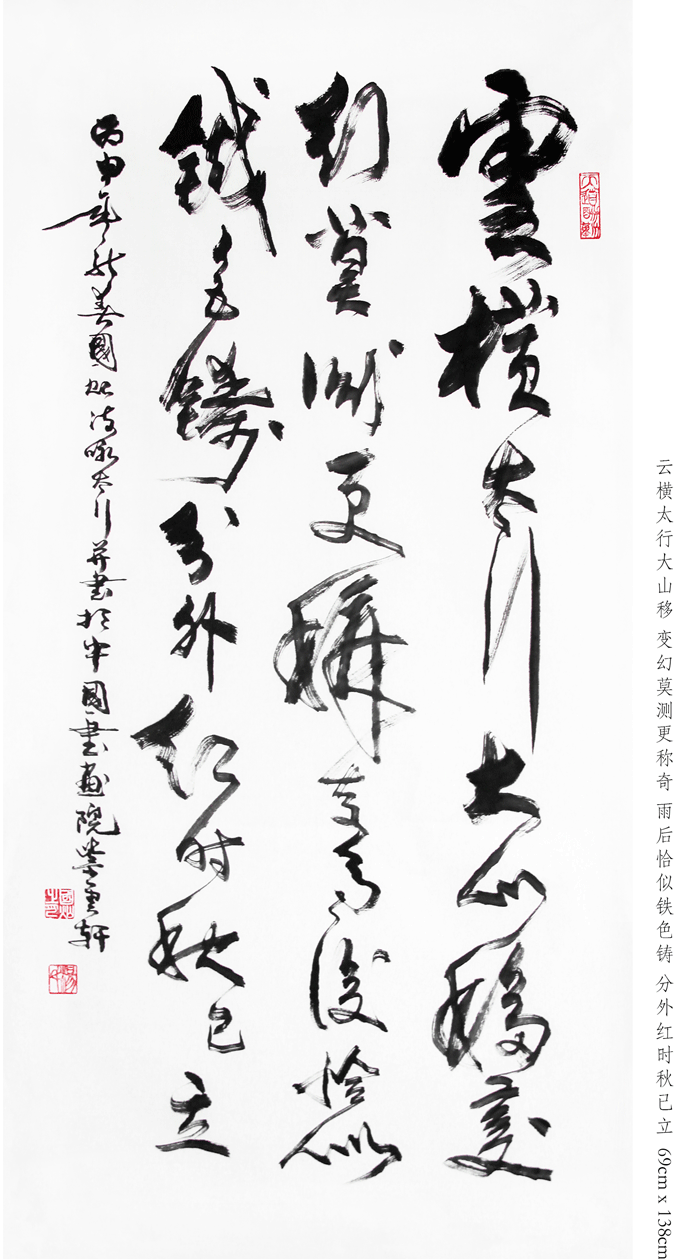 雲橫太行大山移變
幻莫測更稱奇雨後恰似
鐵色鑄分外红时秋已立
丙申年國诗咏太行并書於中國書畫院軒
云横太行大山移 变幻莫测更称奇 雨后恰似铁色铸 分外红时秋已立 69cm x 138cm